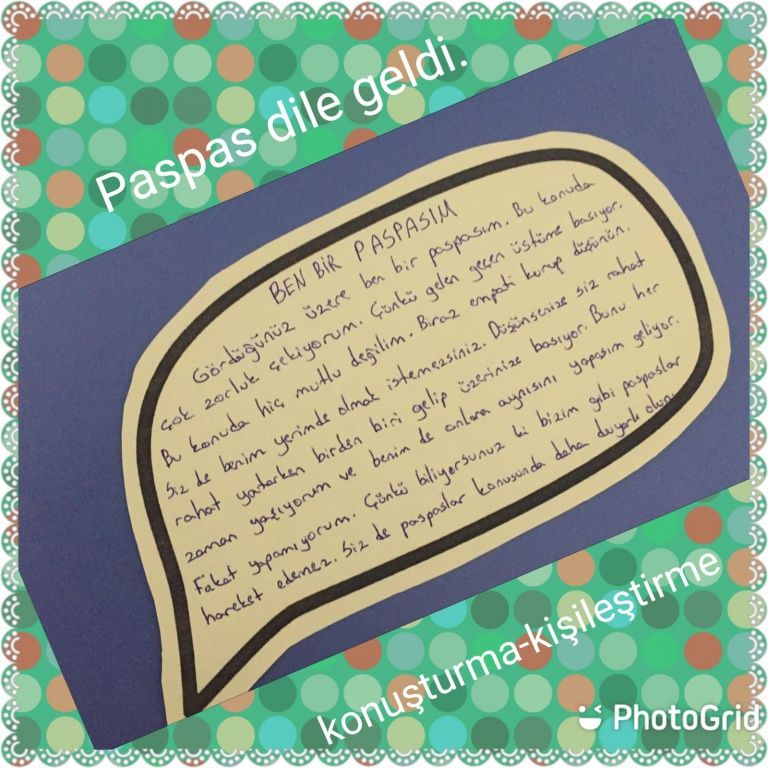 Paspas dile geldi.
BEN BİR PASPASIM
Gördüğünüz üzere ben bir paspasım. Bu konuda
çok zorluk çekiyorum. Çünkü gelen geçen üstüme basıyor.
Bu konuda hiç mutlu değilim. Biraz empati kurup düşünün.
Siz de benim yerimde olmak istemezsiniz. Düşünsenize siz rahat
rahat yatarken birden biri gelip üzerinize basıyor. Bunu her
zaman yaşıyorum ve benim de onlara aynısını yapasım geliyor.
Fakat yapamıyorum. Çünkü biliyorsunuz ki bizim gibi paspaslar
hareket edemez. Siz de paspaslar konusunda daha duyarlı olun.
konuşturma-kişileştirme
PhotoGrid